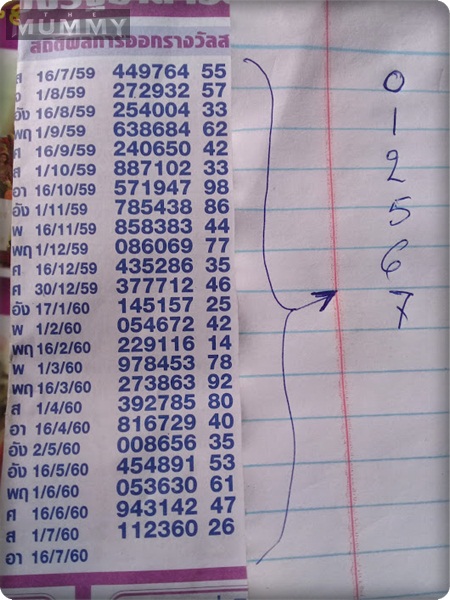 THE
MUMMY
สถิติผลการออกรางวัลส
ส 16/7/59 449764 55
1/8/59 272932 57
อัง 16/8/59 254004 33
พฤ 1/9/59 638684 62
ศ 16/9/59 240650 42
ส 1/10/59 887102 33
อา 16/10/59 571947 98
อัง 1/11/59 785438 86
พ 16/11/59 858383 44
พฤ 1/12/59 086069 77
ศ 16/12/59 435286 35
ศ 30/12/59 377712 46
อัง 17/1/60 145157 25
พ 1/2/60 054672 42
พฤ 16/2/60 229116 14
พ 1/3/60 978453 78
พฤ 16/3/60 273863 92
ส 1/4/60 392785 80
อา 16/4/60 816729 40
อัง 2/5/60 008656 35
อัง 16/5/60 454891 53
พฤ 1/6/60 053630 61
ศ 16/6/60 943142 47
ส 1/7/60 112360 26
อา 16/7/60
0
1
2
5
6
7